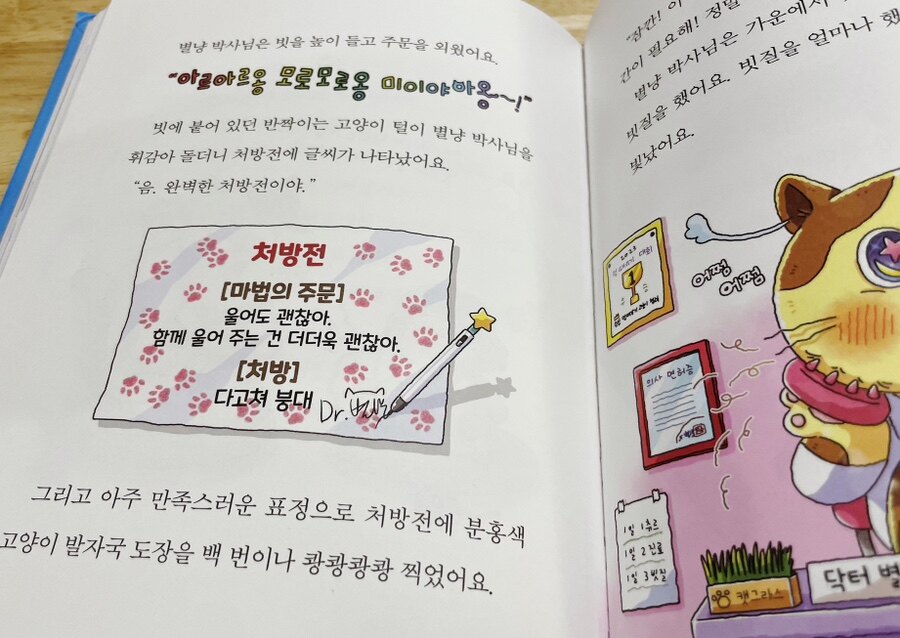 별냥 박사님은 빗을 높이 들고 주문을 외웠어요.
"아르아르옹 모로모로옹 미이야마옹~!"
빗에 붙어 있던 반짝이는 고양이 털이 별냥 박사님을
휘감아 돌더니 처방전에 글씨가 나타났어요.
"음. 완벽한 처방전이야."
처방전
[마법의 주문]
울어도 괜찮아.
함께 울어 주는 건 더더욱 괜찮아.
[처방]
다고쳐 붕대
Dr.
그리고 아주 만족스러운 표정으로 처방전에 분홍색
고양이 발자국 도장을 백 번이나 쾅쾅쾅쾅 찍었어요.
"잠깐! 이
간이 필요해! 정밀
별냥 박사님은 가운에서
빗질을 했어요. 빗질을 얼마나 했
빛났어요.
2023
1
어쩜
어쩜
의사 면허증
1일 1츄르
1일 2진료
1일 3빗질
캣그라스
닥터 별